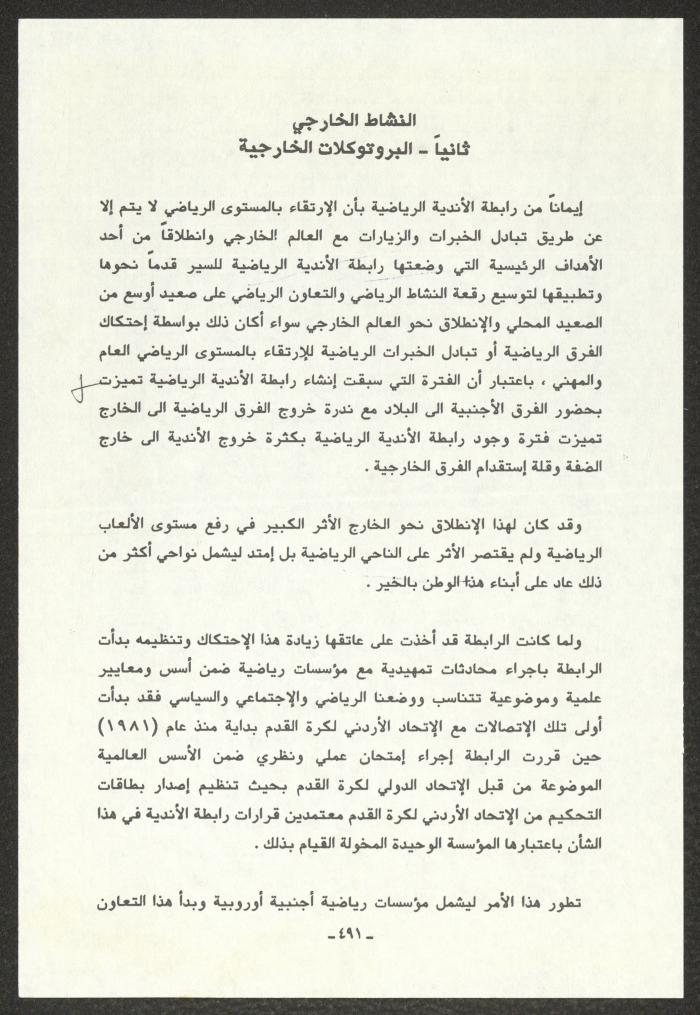 النشاط الخارجي
ثانياً - البروتوكلات الخارجية
إيماناً من رابطة الأندية الرياضية بأن الإرتقاء بالمستوى الرياضي لا يتم إلا
عن طريق تبادل الخبرات والزيارات مع العالم الخارجي وانطلاقاً من أحد
الأهداف الرئيسية التي وضعتها رابطة الأندية الرياضية للسير قدماً نحوها
وتطبيقها لتوسيع رقعة النشاط الرياضي والتعاون الرياضي على صعيد أوسع من
الصعيد المحلي والإنطلاق نحو العالم الخارجي سواء أكان ذلك بواسطة إحتكاك
الفرق الرياضية أو تبادل الخبرات الرياضية للإرتقاء بالمستوى الرياضي العام
والمهني ، باعتبار أن الفترة التي سبقت إنشاء رابطة الأندية الرياضية تميزت
بحضور الفرق الأجنبية الى البلاد مع ندرة خروج الفرق الرياضية الى الخارج
تميزت فترة وجود رابطة الأندية الرياضية بكثرة خروج الأندية الى خارج
الضفة وقلة إستقدام الفرق الخارجية .
وقد كان لهذا الإنطلاق نحو الخارج الأثر الكبير في رفع مستوى الألعاب
الرياضية ولم يقتصر الأثر على الناحي الرياضية بل إمتد ليشمل نواحي أكثر من
ذلك عاد على أبناء هذا الوطن بالخير .
ولما كانت الرابطة قد أخذت على عاتقها زيادة هذا الإحتكاك وتنظيمه بدأت
الرابطة باجراء محادثات تمهيدية مع مؤسسات رياضية ضمن أسس ومعايير
علمية وموضوعية تتناسب ووضعنا الرياضي والإجتماعي والسياسي فقد بدأت
أولى تلك الإتصالات مع الإتحاد الأردني لكرة القدم بداية منذ عام (١٩٨١)
حين قررت الرابطة إجراء إمتحان عملي ونظري ضمن الأسس العالمية
الموضوعة من قبل الإتحاد الدولي لكرة القدم بحيث تنظيم إصدار بطاقات
التحكيم من الإتحاد الأردني لكرة القدم معتمدين قرارات رابطة الأندية في هذا
الشأن باعتبارها المؤسسة الوحيدة المخولة القيام بذلك .
تطور هذا الأمر ليشمل مؤسسات رياضية أجنبية أوروبية وبدأ هذا التعاون
ـ ٤٩١ ـ